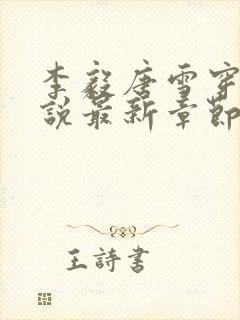 李毅唐雪穿
說最新章節
王詩書